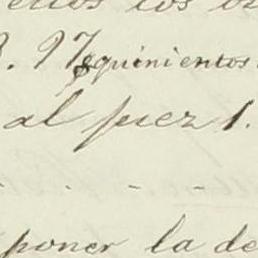 ellos los
3. 97 quinientos
al juez 1.
poner la de